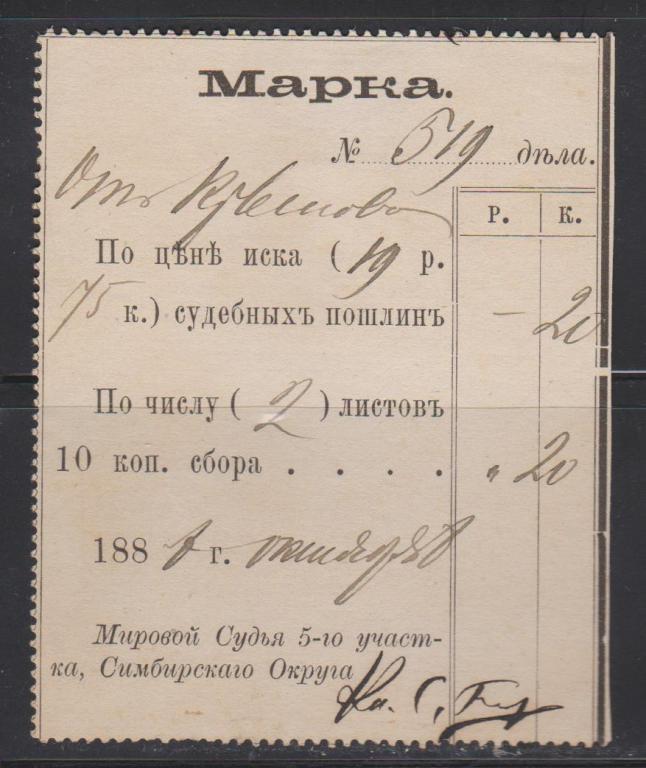 Марка.
№ 519 дѣла.
Отъ
Р. К.
По цѣнѣ иска ( 19 р.
75 к.) судебныхъ пошлинъ – 20
По числу ( 2 ) листовъ
10 коп. сбора . . . . „ 20
188 г. октября 8
Мировой Судья 5-го участ-
ка, Симбирскаго Округа